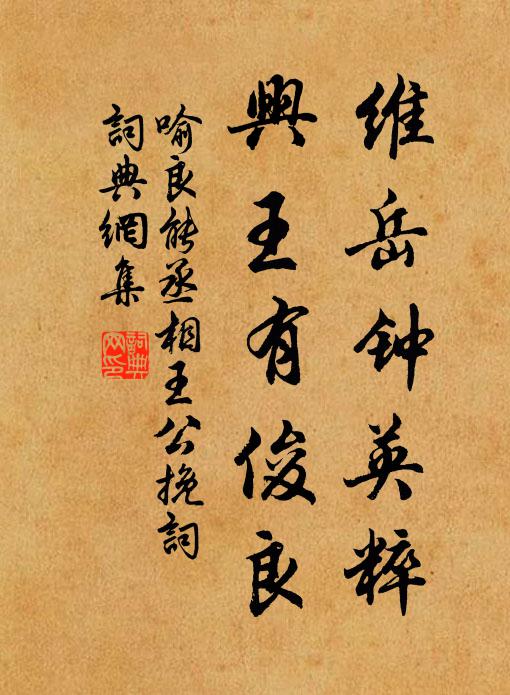 维岳钟英粹
興王有俊良
喻良能丞相王公挽詞
詞典網集
詞典網印